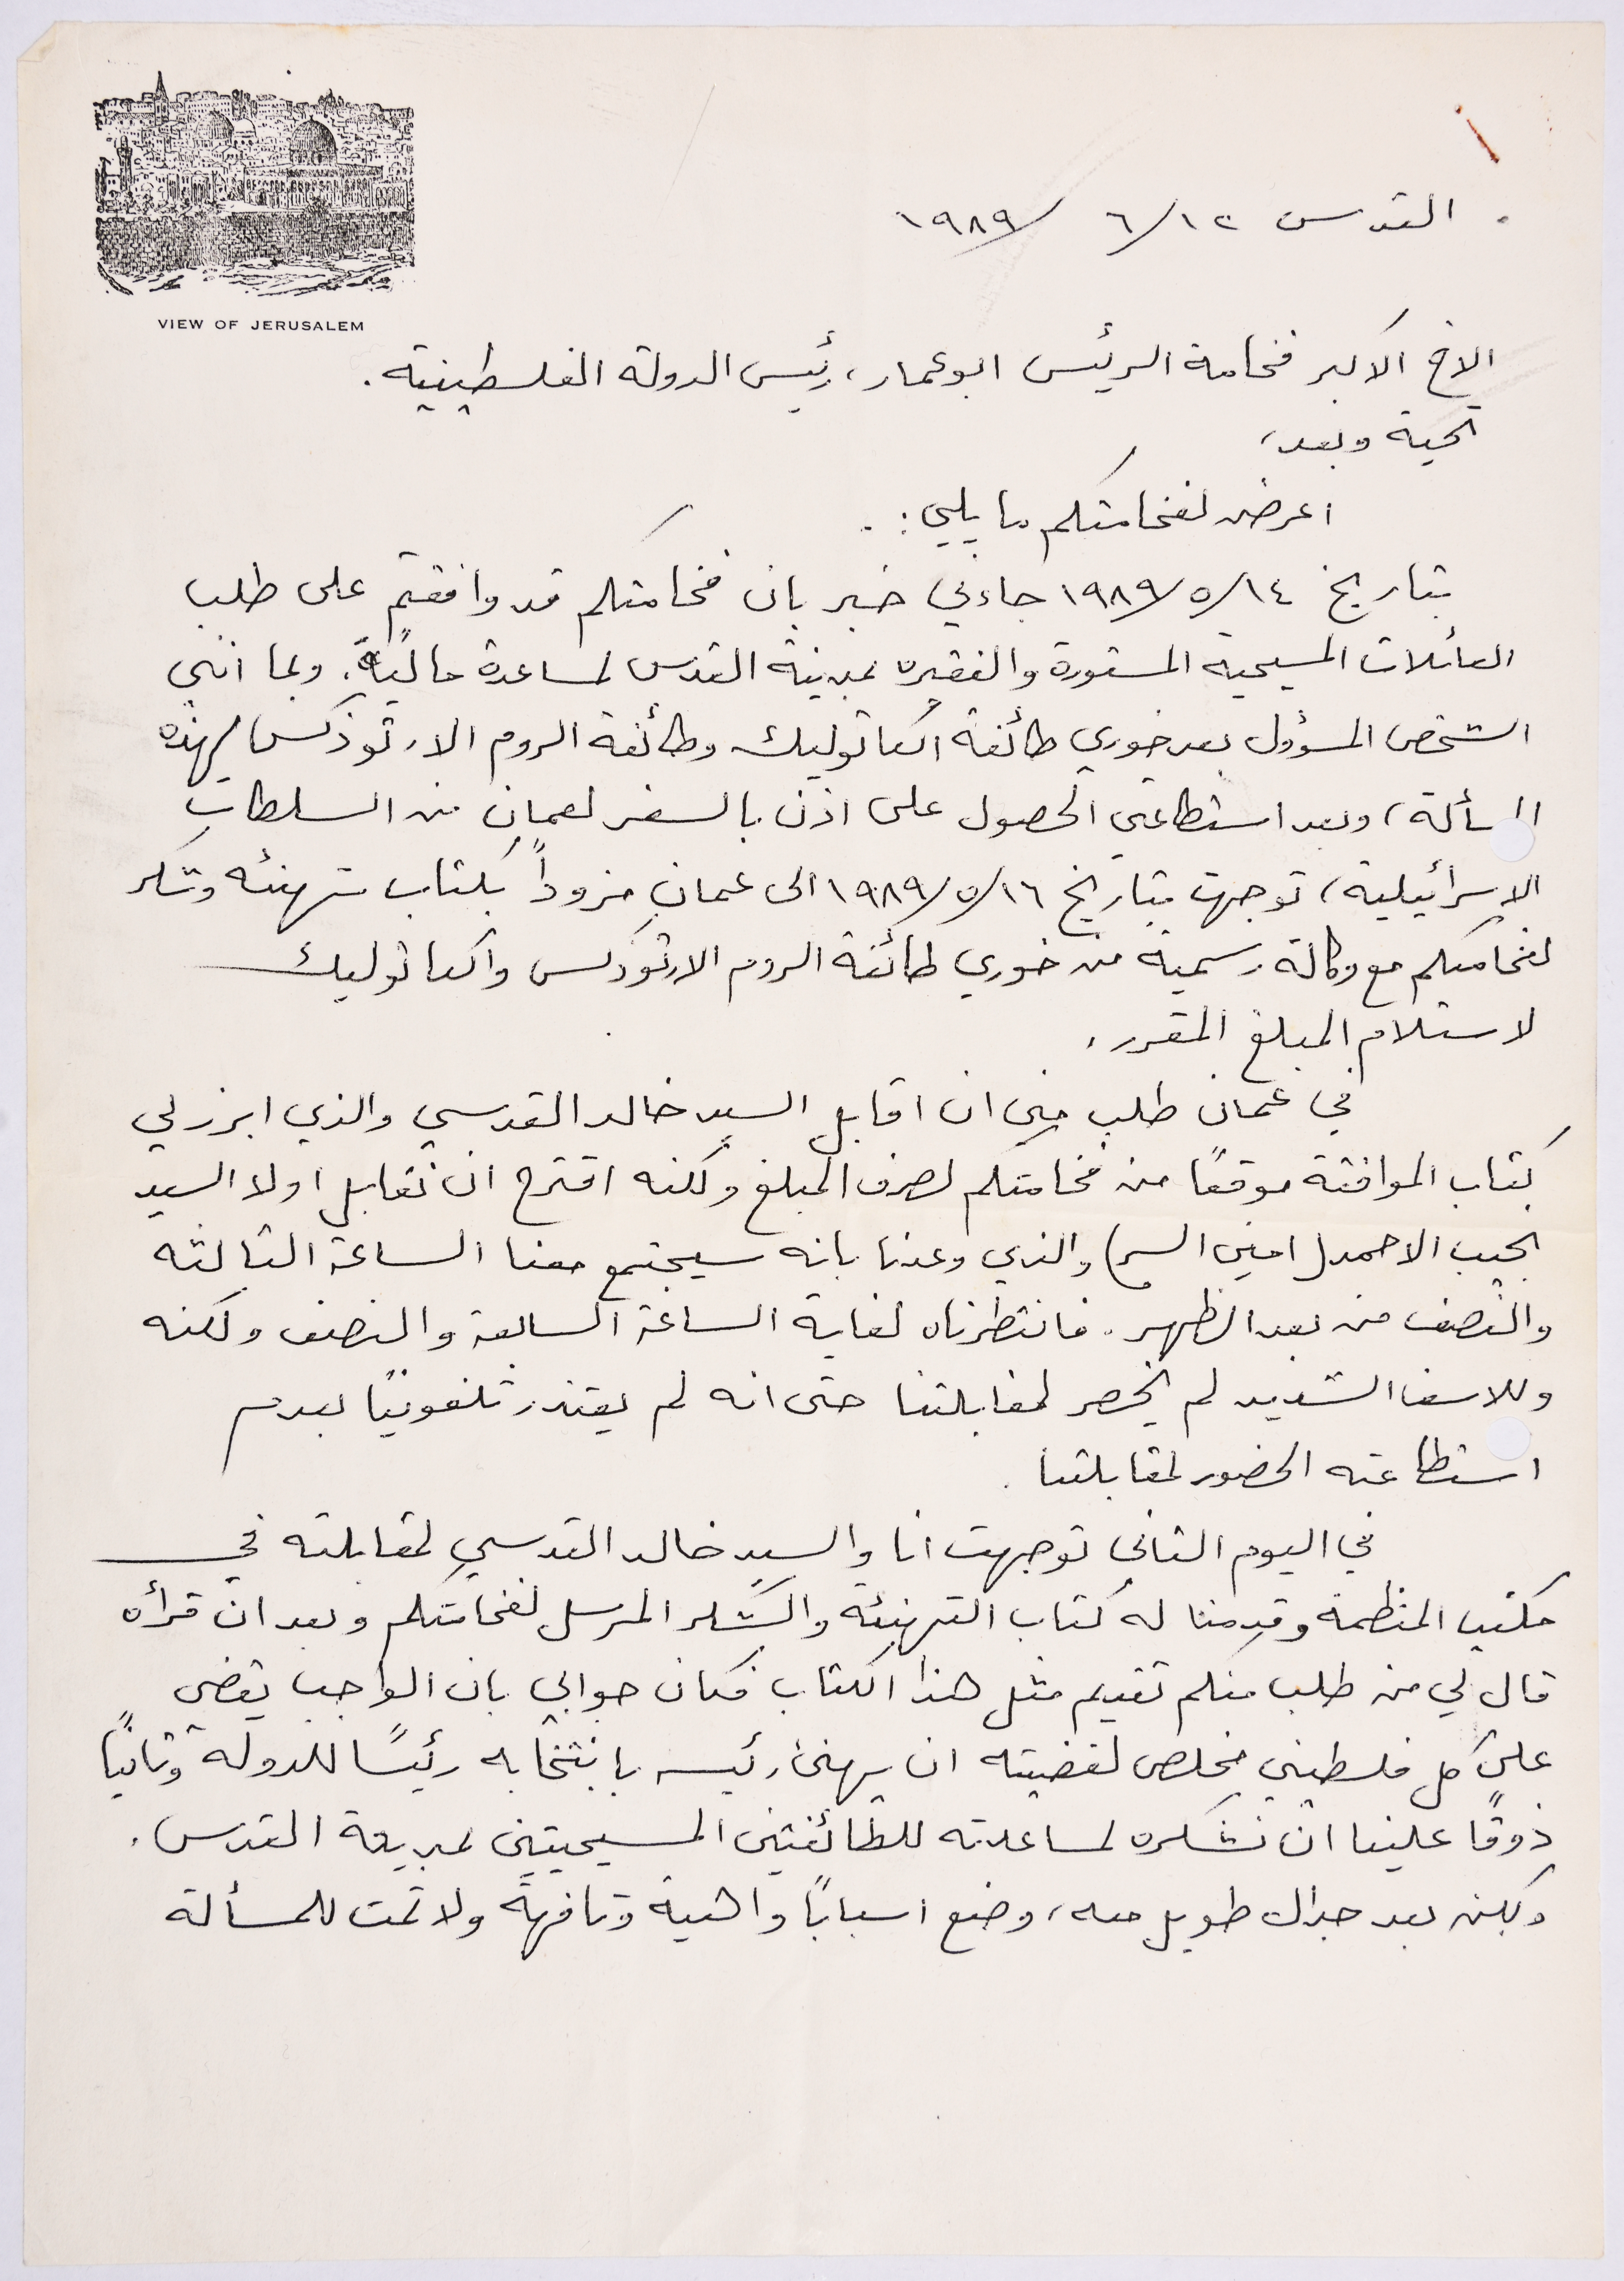 VIEW OF JERUSALEM
القدس ١٢/٦/١٩٨٩
الاخ الاكبر فخامة الرئيس ابوعمار، رئيس الدولة الفلسطينية.
تحية وبعد،
اعرض لفخامتكم ما يلي:.
بتاريخ ١٤/٥/١٩٨٩ جاءني خبر بان فخامتكم قد وافقتم على طلب
العائلات المسيحية المستورة والفقيره بمدينة القدس لمساعدة مالية. وبما انني
الشخص المسؤول بعد خوري طائفة الكاثوليك وطائفة الروم الارثوذكس لهذه
المسألة، وبعد استطاعتي الحصول على اذن بالسفر لعمان من السلطات
الاسرائيلية، توجهت بتاريخ ١٦/٥/١٩٨٩ الى عمان مزوداً بكتاب تهنئه وشكر
لفخامتكم مع وكالة رسمية من خوري طائفة الروم الارثوذكس والكاثوليك
لاستلام المبلغ المقرر.
في عمان طلب مني ان اقابل السيد خالد القدسي والذي ابرز لي
كتاب الموافقة موقعًا من فخامتكم لصرف المبلغ ولكنه اقترح ان نقابل اولا السيد
نجيب الاحمد (امين السر) والذي وعدنا بانه سيجتمع معنا الساعة الثالثه
والنصف من بعد الظهر. فانتظرناه لغاية الساعة السابعة والنصف ولكنه
وللاسف الشديد لم يحضر لمقابلتنا حتى انه لم يعتذر تلفونيًا بعدم
استطاعته الحضور لمقابلتنا.
في اليوم الثاني توجهت انا والسيد خالد القدسي لمقابلته في
مكتب المنظمة وقدمنا له كتاب التهنئة والشكر المرسل لفخامتكم وبعد ان قرأه
قال لي من طلب منكم تقديم مثل هذا الكتاب فكان جوابي بان الواجب يقضي
على كل فلسطيني مخلص لقضيته ان يهنئ رئيسه بانتخابه رئيسًا للدولة وثانيًا
ذوقًا علينا ان نشكره لمساعدته للطائفتين المسيحيتين بمدينة القدس.
ولكن بعد جدال طويل معه، وضع اسبابًا واهية وتافهة ولا تمت للمسألة